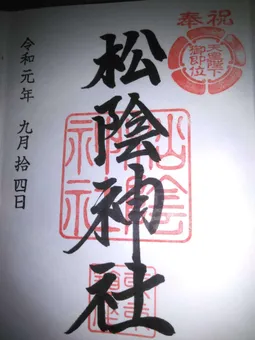 奉祝
天皇陛下
御即位
松陰神社
令和元年 九月 拾四日
松陰
神社